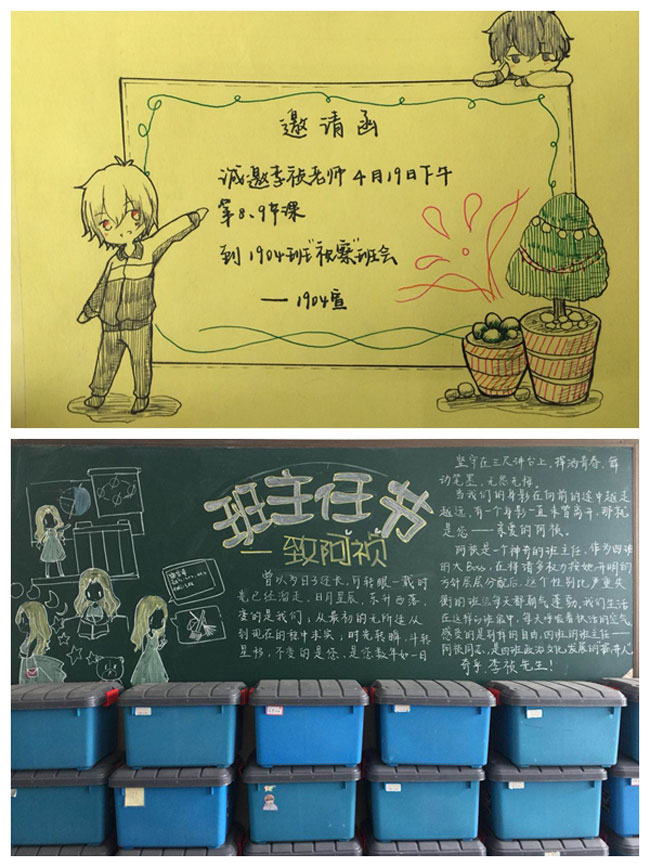 邀请函
诚邀李祯老师4月19日下午
第8、9节课
到1904班"视察"班会
——1904宣
班主任节
—致阿祯
曾以为日子还长,可转眼一载时
光已经溜走,日月星辰,东升西落,
变的是我们,从最初的无所适从
到现在的稳中求实;时光转瞬,斗转
星移,不变的是您,是您数年如一日
坚守在三尺讲台上,挥洒青春,舞
动笔墨,无怨无悔。
当我们的身影在向前的途中越走
越远,有一个身影一直未曾离开,那就
是您——亲爱的阿祯。
阿祯是一个神奇的班主任,作为四班
的大Boss,在将诸多权力按她开明的
方针层层分配后,这个性别比严重失
衡的班级每天都朝气蓬勃,我们生活
在这样的班级中,每天呼吸着快活的空气
感受的是别样的自由,四班的班主任——
阿祯同志,是四班政治文化发展的带头人
奇乎,李祯先生!